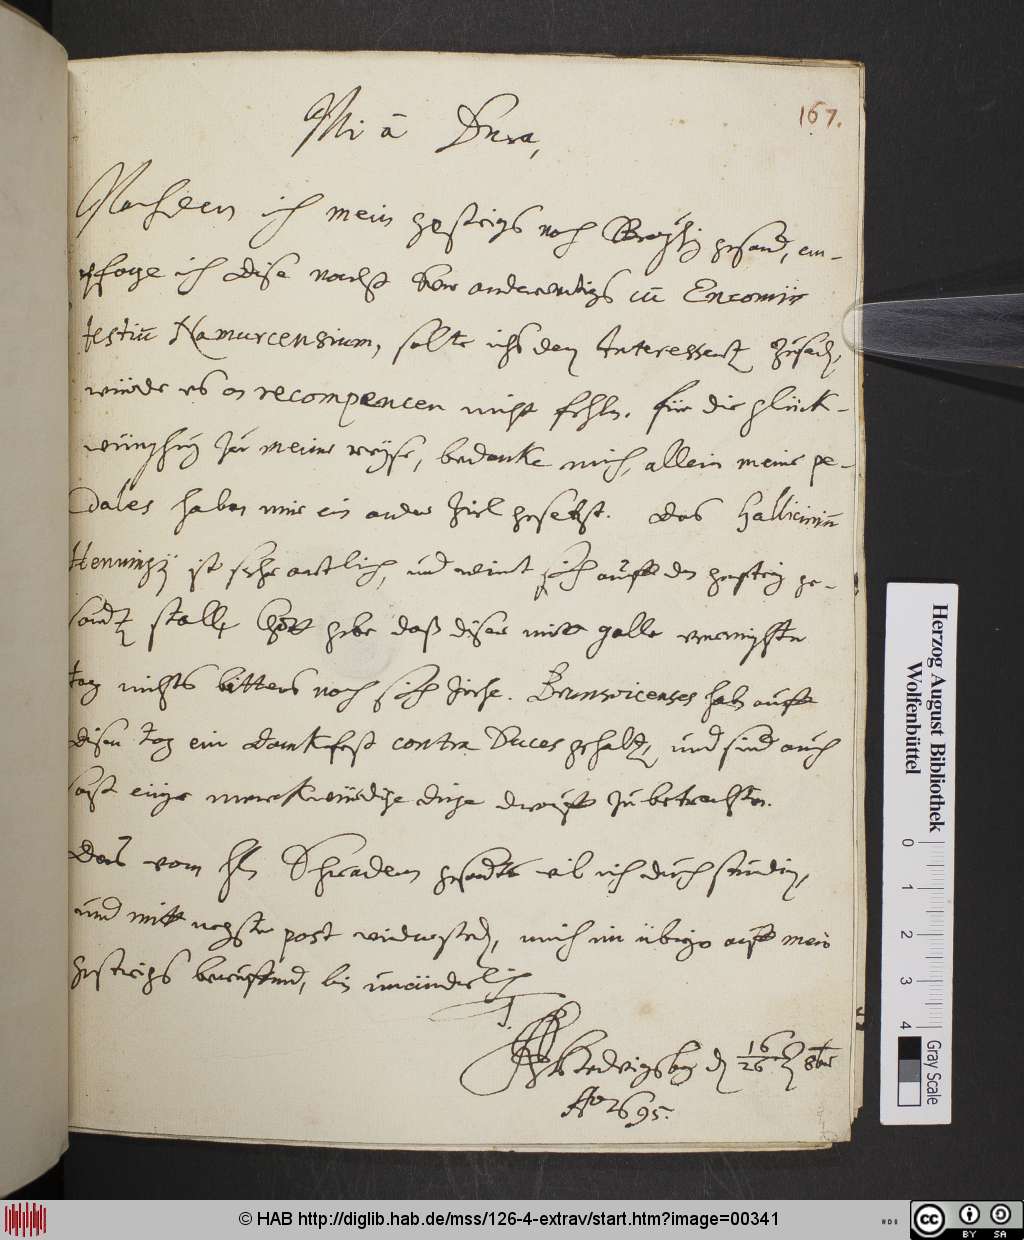 167.
Mi ā Dura,
Nachdem ich mein gestrigs nach Brag gesand, em-
pfange ich dise nachst dem anderwertigs cū Encomiis
festiū Namurcensium, solte ichs den Interessent zusend,
würde es an recompencen nicht fehln. für die glück-
wünschūg zu meine reyse, bedanke mich, allein meine pe-
dales haben mir ein ander Ziel gesetzt. das Galliciniū
Henningÿ ist sehr artlich, und reimt sich auff den gestrig ge-
sandt Gott gebe daß diser mitt galle vermischte
tag nichts bitters nach sich ziehe. Brunsvicenses habn auff
disen tag ein dankfest contra Duces gehaltn, und sind auch
fast einige merckwürdige dinge darauff zu betrachten.
das vom Hn Schradern gesandte wil ich durchstudirn,
und mitt negster post widersendn, mich im übrigen auff mein
gestrigs beruffend, bin unverändrlich
Hedwigsbg d 16/26 8br
Ao 1695.
Herzog August Bibliothek
Wolfenbüttel
0 1 2 3 4
Gray Scale
© HAB http://diglib.hab.de/mss/126-4-extrav/start.htm?image=00341
cc BY SA